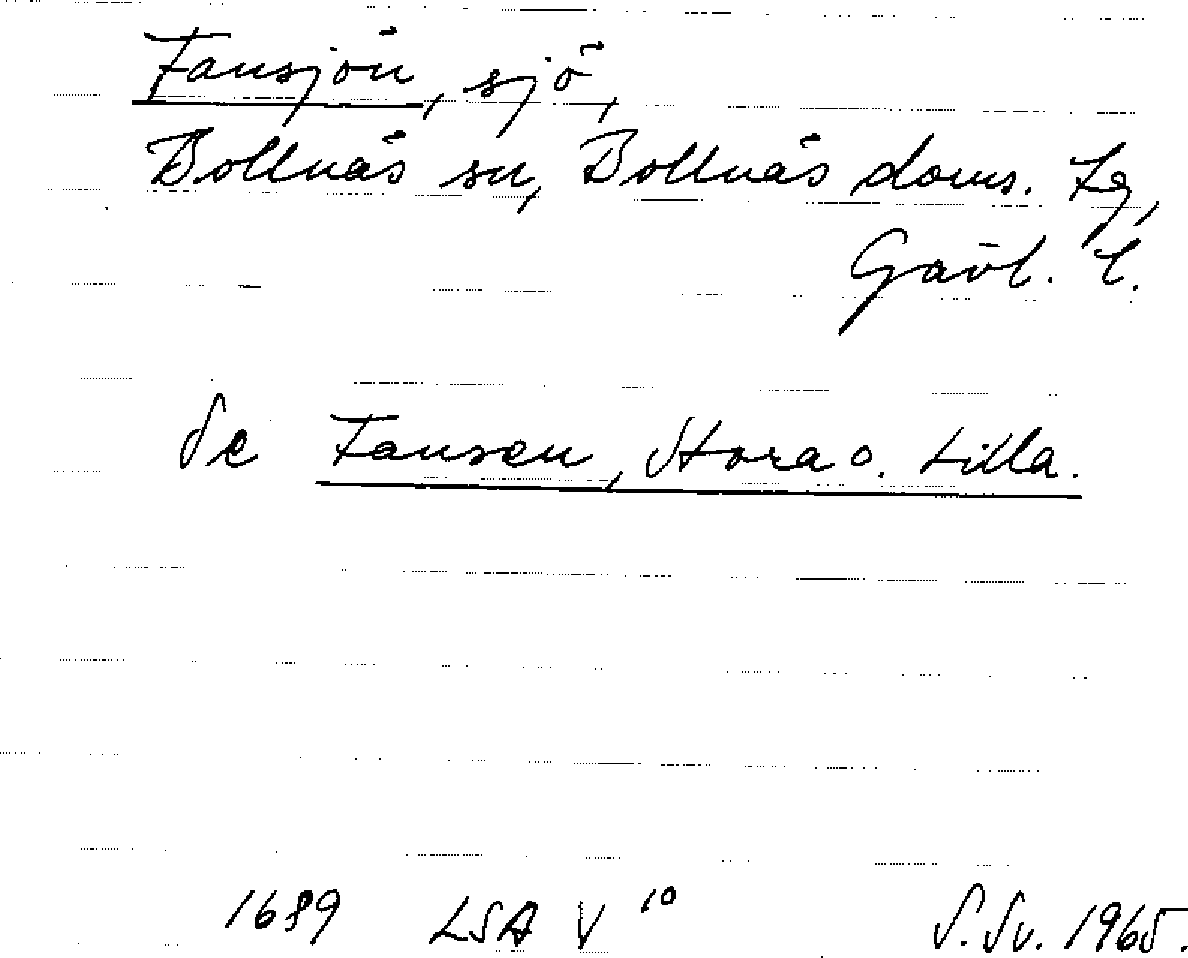 Fansjön, sjö,
Bollnäs sn, Bollnäs doms. Lg,
Gävl. l.
Se Fansen, Stora o. Lilla.
1689 LSA V 10 S.Sv. 1965.